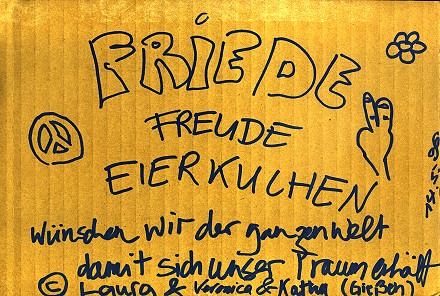 FRIEDE
FREUDE
EIERKUCHEN
Wünschen wir der ganzen Welt
damit sich unser Traum erhält
© Laura & Veronica & Katha (Gießen)